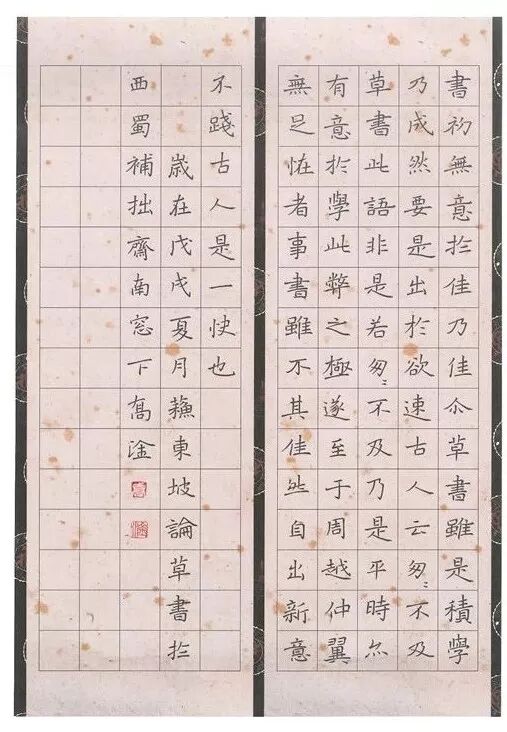 書初無意扵佳乃佳尒草書雖是積學
乃成然要是出於欲速古人云匆〻不及
草書此語非是若匆〻不及乃是平時亦
有意扵學此弊之極遂至于周越仲翼
無足恠者事書雖不其佳然自出新意
不踐古人是一快也
歳在戊戌夏月蘓東坡論草書扵
西蜀補拙齋南窓下髙淦